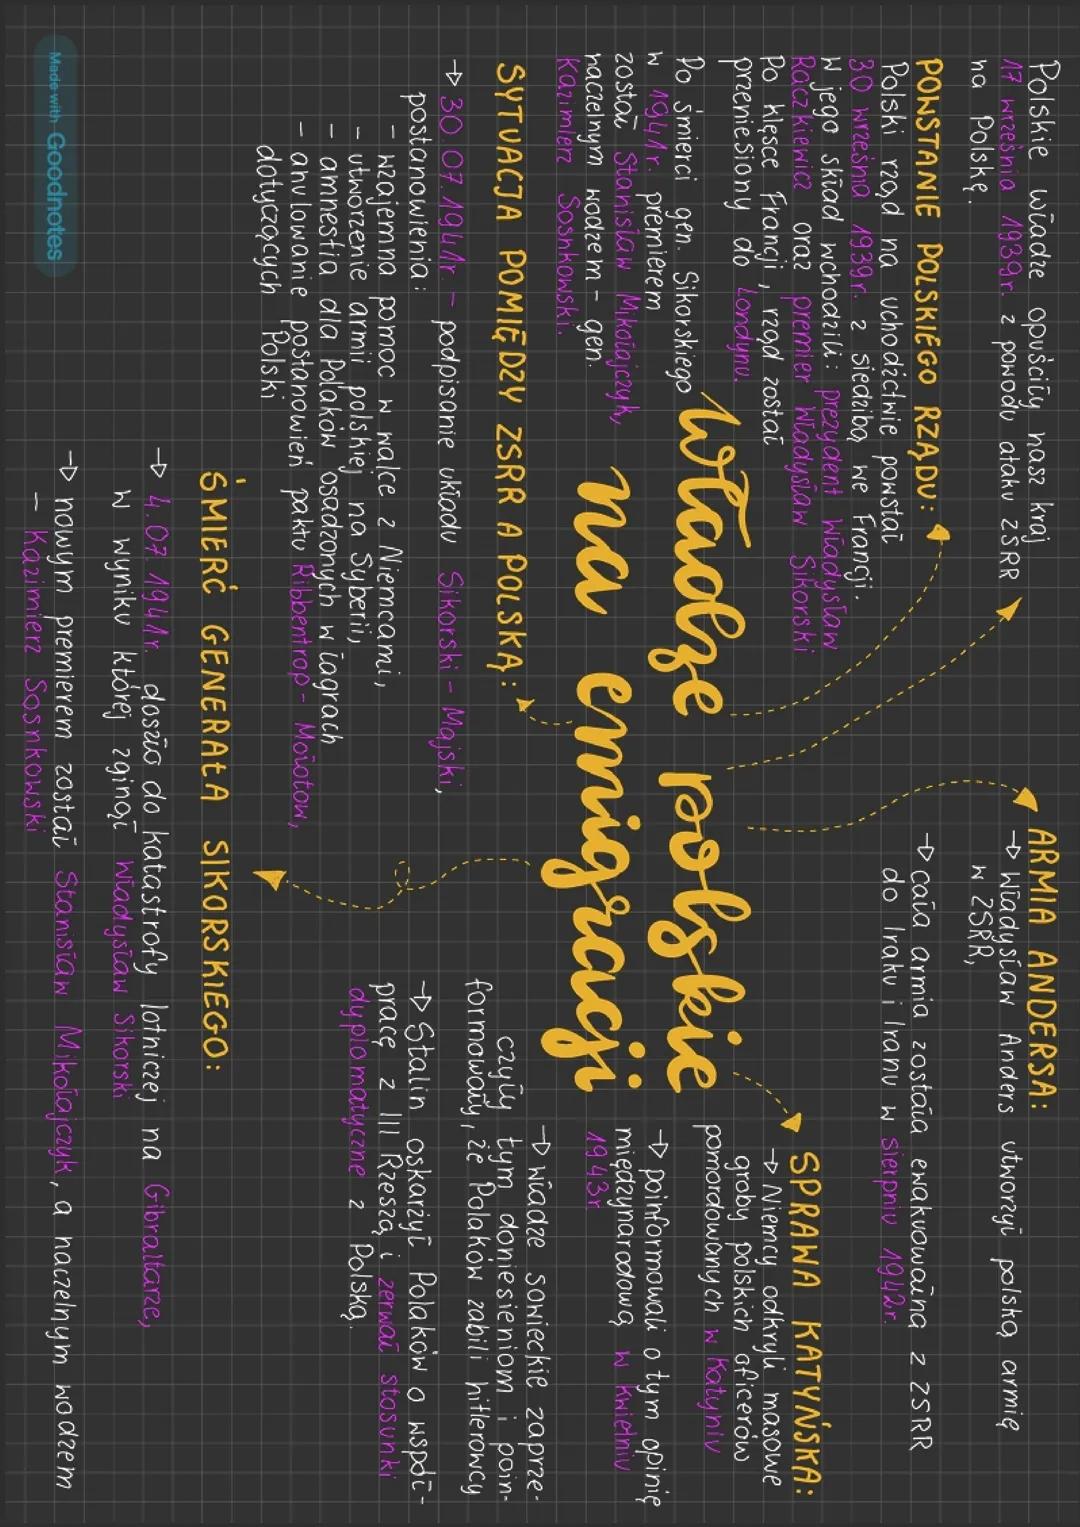 Polskie władze opuściły nasz kraj
17 września 1939r. z powodu ataku ZSRR
na Polskę.
POWSTANIE POLSKIEGO RZĄDU:
Polski rząd na uchodźctwie powstał
30 września 1939r. z siedzibą we Francji.
W jego skład wchodzili: prezydent Władysław
Raczkiewicz oraz premier Władysław Sikorski
Po klęsce Francji, rząd został
przeniesiony do Londynu.
Po śmierci gen. Sikorskiego
w 1941r. premierem
został Stanisław Mikołajczyk,
naczelnym wodzem - gen.
Kazimierz Sosnkowski.
Władze polskie
na emigracji
ARMIA ANDERSA:
→ Władysław Anders utworzył polską armię
w ZSRR,
→ cała armia została ewakuowałna z ZSRR
do Iraku i Iranu w sierpniu 1942r.
SPRAWA KATYŃSKA:
→ Niemcy odkryli masowe
groby polskich oficerów
pomordowanych w Katyniu
→ poinformowali o tym opinię
międzynarodową w kwietniu
1943r.
→ władze sowieckie zaprze-
czyły tym doniesieniom i poin-
formowały, że Polaków zabili hitlerowcy
→ Stalin oskarżył Polaków o współ-
pracę z III Rzeszą i zerwał stosunki
dyplomatyczne z Polską.
SYTUACJA POMIĘDZY ZSRR A POLSKĄ:
→ 30.07.1941r. - podpisanie układu Sikorski - Majski,
postanowienia:
- wzajemna pomoc w walce z Niemcami,
- utworzenie armii polskiej na Syberii,
- amnestia dla Polaków osadzonych w łagrach
- anulowanie postanowień paktu Ribbentrop - Mołotow,
dotyczących Polski
ŚMIERĆ GENERAŁA SIKORSKIEGO:
→ 4.07.1941r. doszło do katastrofy lotniczej na Gibraltarze,
w wyniku której zginął Władysław Sikorski
→ nowym premierem został Stanisław Mikołajczyk, a naczelnym wodzem
- Kazimierz Sosnkowski
Made with Goodnotes